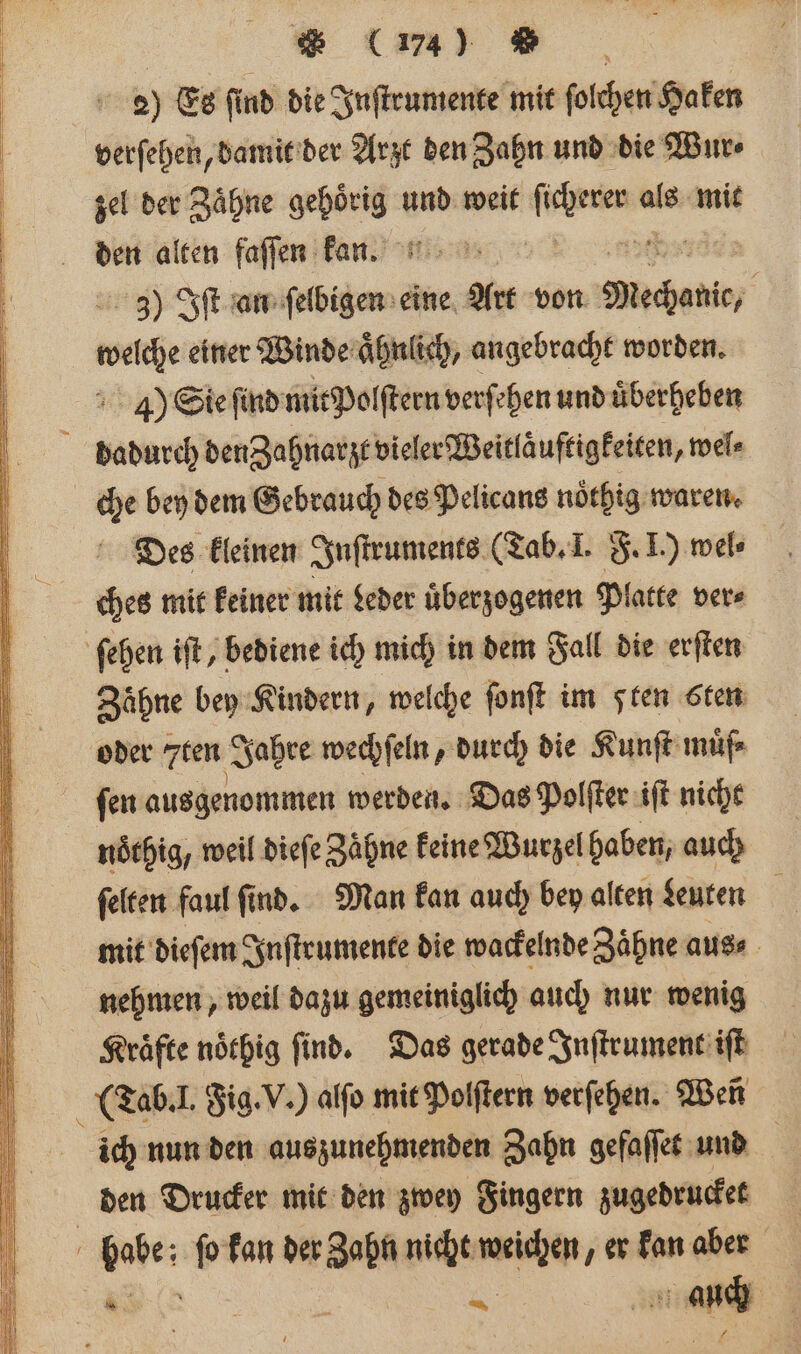 ❁ (174) ❁
2) Es ſind die Inſtrumente mit ſolchen Haken
verſehen, damit der Arzt den Zahn und die Wur⸗
zel der Zaͤhne gehoͤrig und weit ſicherer als mit
den alten faſſen kan.
3) Iſt an ſelbigen eine Art von Mechanic,
welche einer Winde aͤhnlich, angebracht worden.
4) Sie ſind mit Polſtern verſehen und uͤberheben
dadurch den Zahnarzt vieler Weitlaͤuftigkeiten, wel⸗
che bey dem Gebrauch des Pelicans noͤthig waren.
Des kleinen Inſtruments (Tab. I. F. I.) wel⸗
ches mit keiner mit Leder uͤberzogenen Platte ver⸗
ſehen iſt, bediene ich mich in dem Fall die erſten
Zaͤhne bey Kindern, welche ſonſt im 5ten 6ten
oder 7ten Jahre wechſeln, durch die Kunſt muͤſ⸗
ſen ausgenommen werden. Das Polſter iſt nicht
noͤthig, weil dieſe Zaͤhne keine Wurzel haben, auch
ſelten faul ſind. Man kan auch bey alten Leuten
mit dieſem Inſtrumente die wackelnde Zaͤhne aus⸗
nehmen, weil dazu gemeiniglich auch nur wenig
Kraͤfte noͤthig ſind. Das gerade Inſtrument iſt
(Tab. I. Fig. V.) alſo mit Polſtern verſehen. Weñ
ich nun den auszunehmenden Zahn gefaſſet und
den Drucker mit den zwey Fingern zugedrucket
habe: ſo kan der Zahn nicht weichen, er kan aber
auch